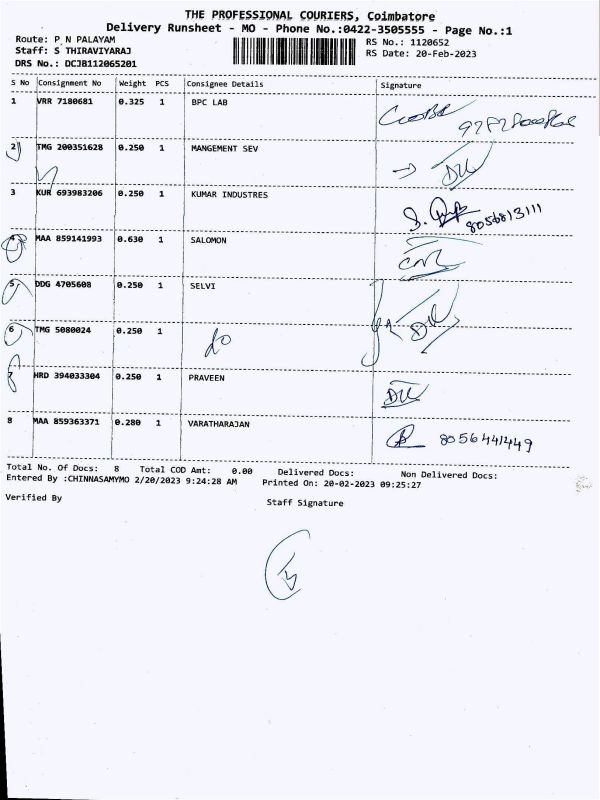 THE PROFESSIONAL COURIERS, Coimbatore
Delivery Runsheet - MO - Phone No.:0422-3505555 - Page No.:1
Route: P N PALAYAM
RS No.: 1120652
Staff: S THIRAVIYARAJ
RS Date: 20-Feb-2023
DRS No.: DCJB112065201
S No Consignment No Weight PCS Consignee Details Signature
1 VRR 7180681 0.325 1 BPC LAB
2 TMG 200351628 0.250 1 MANGEMENT SEV
3 KUR 693983206 0.250 1 KUMAR INDUSTRES
8056813111
4 MAA 859141993 0.630 1 SALOMON
5 DDG 4705608 0.250 1 SELVI
6 TMG 5080024 0.250 1
7 HRD 394033304 0.250 1 PRAVEEN
8 MAA 859363371 0.280 1 VARATHARAJAN
8056441449
Total No. Of Docs: 8 Total COD Amt: 0.00 Delivered Docs: Non Delivered Docs:
Entered By :CHINNASAMYMO 2/20/2023 9:24:28 AM Printed On: 20-02-2023 09:25:27
Verified By Staff Signature